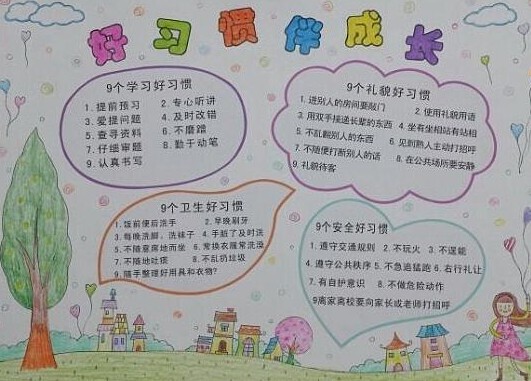 好习惯伴成长
9个学习好习惯
1.提前预习 2.专心听讲
3.爱提问题 4.及时改错
5.查寻资料 6.不磨蹭
7.仔细审题 8.勤于动笔
9.认真书写
9个礼貌好习惯
1.进别人的房间要敲门 2.使用礼貌用语
3.用双手接递长辈的东西 4.坐有坐相站有站相
5.不乱翻别人的东西 6.见到熟人主动打招呼
7.不随便打断别人的话 8.在公共场所要安静
9.礼貌待客
9个卫生好习惯
1.饭前便后洗手 2.早晚刷牙
3.每晚洗脚、洗袜子 4.手脏了及时洗
5.不随意席地而坐 6.常换衣服常洗澡
7.不随地吐痰 8.不乱扔垃圾
9.随手整理好用具和衣物?
9个安全好习惯
1.遵守交通规则 2.不玩火 3.不逞能
4.遵守公共秩序 5.不急追猛跑 6.右行礼让
7.有自护意识 8.不做危险动作
9离家离校要向家长或老师打招呼